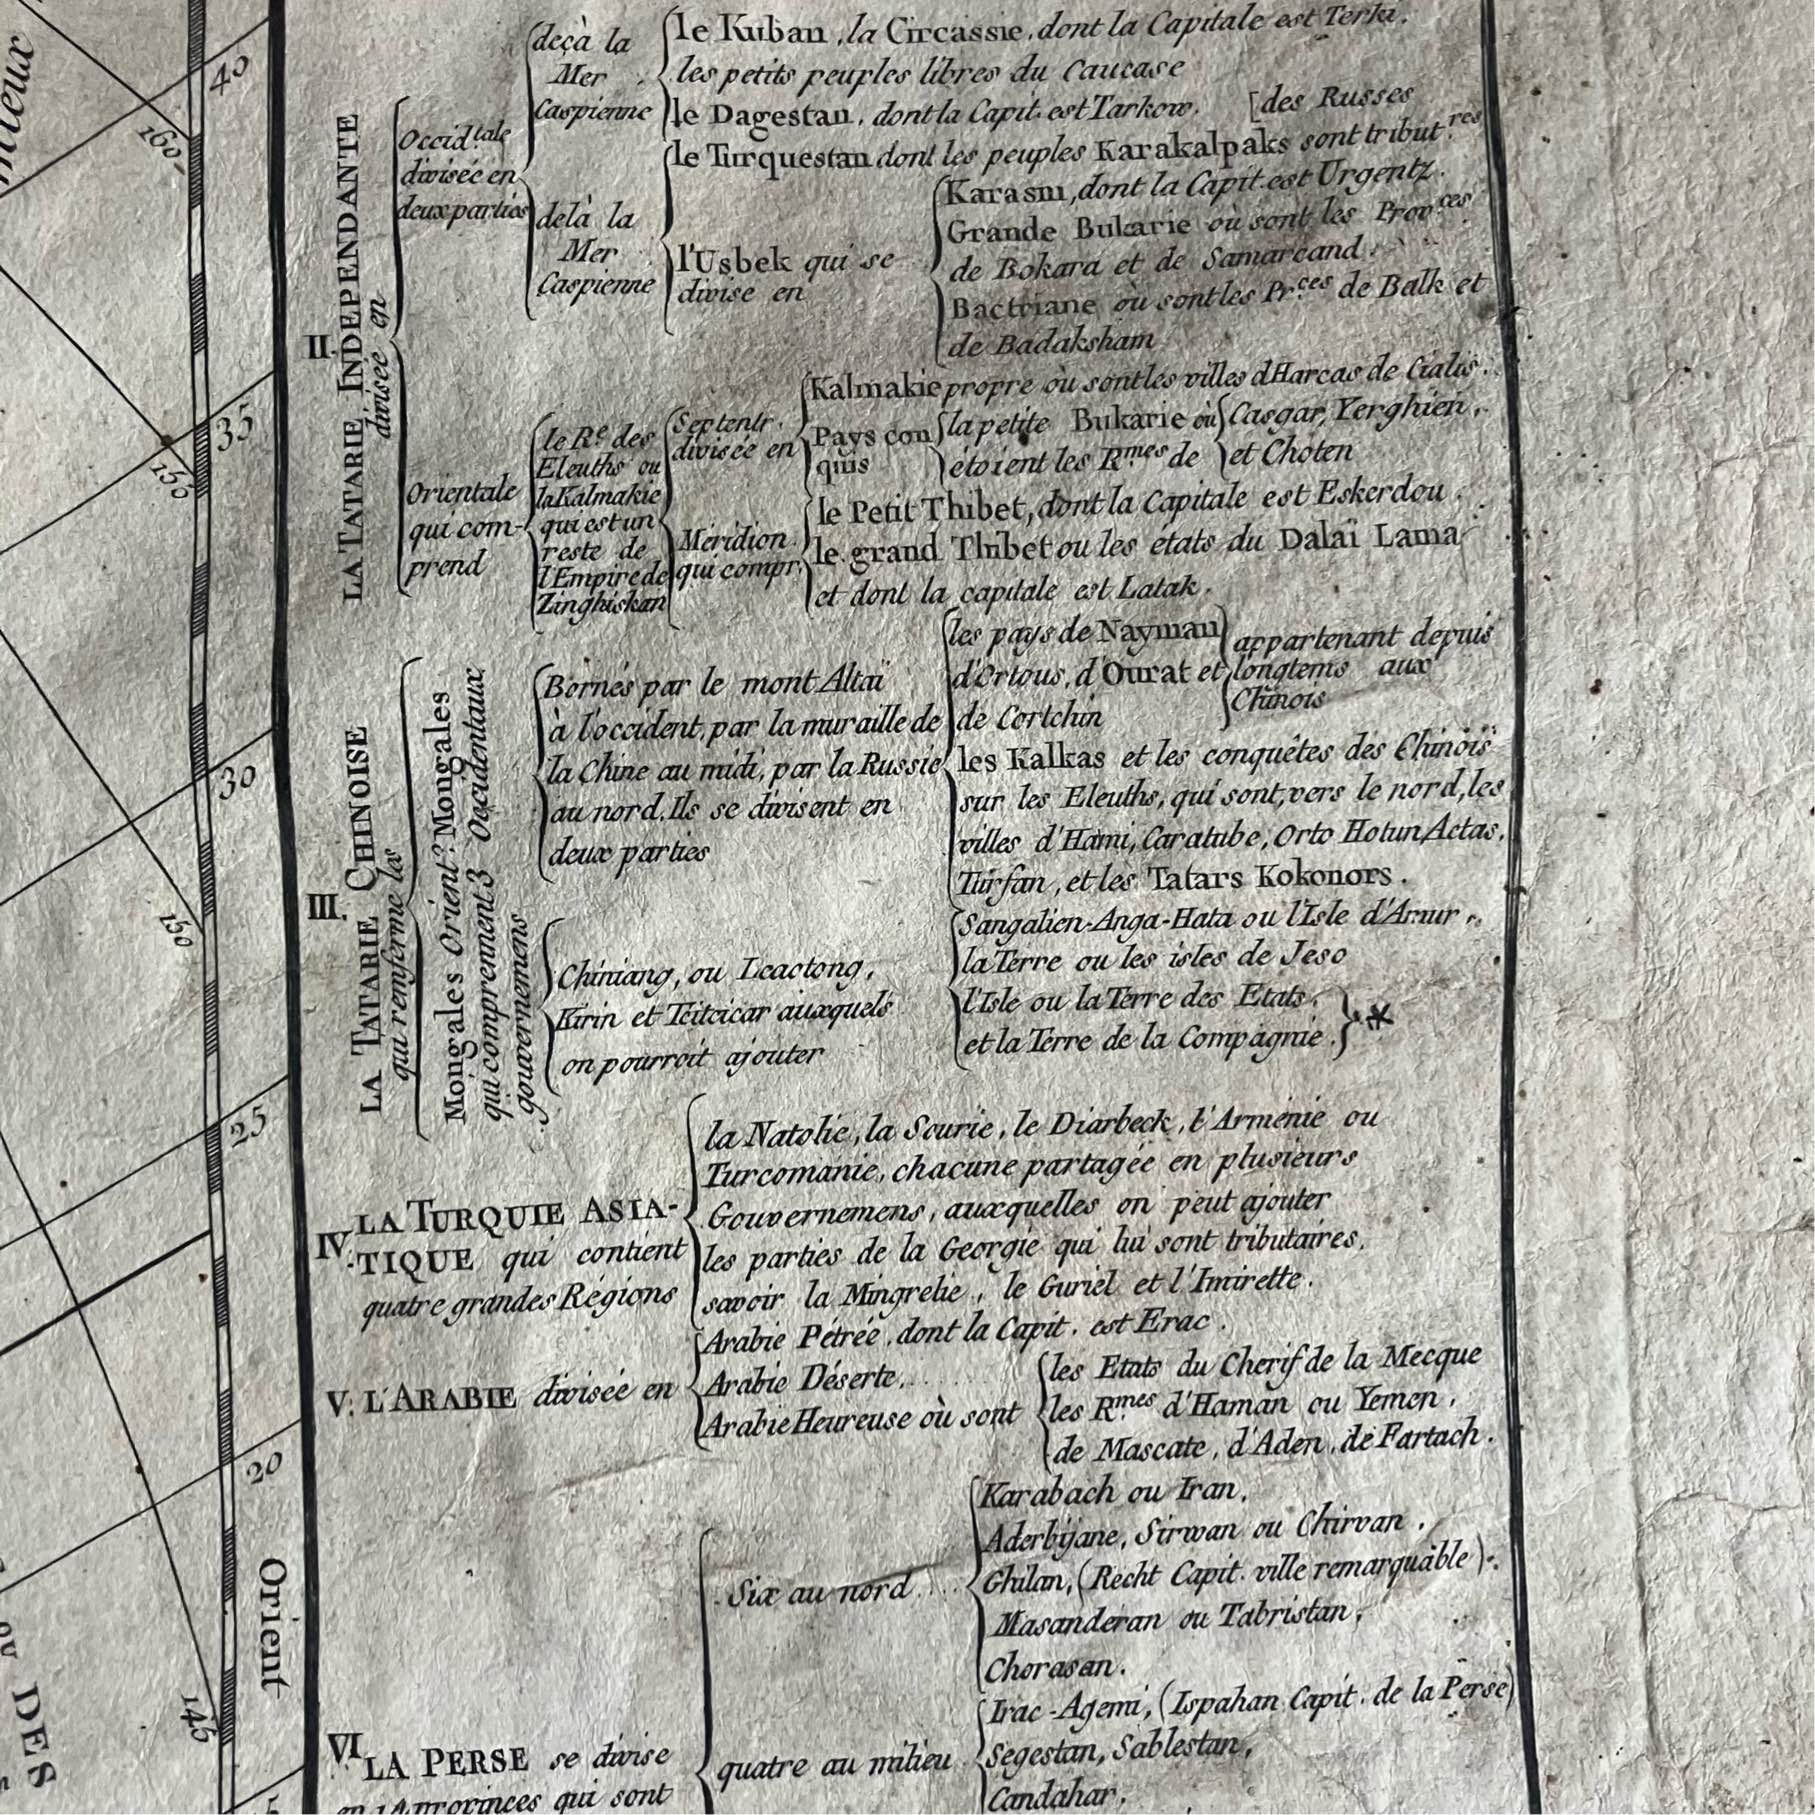 rieux
40
160
35
155
30
150
25
20
Orient
145
OU DES
II.
LA TATARIE INDEPENDANTE
divisée en
Occid.tale
divisée en
deux parties
deçà la
Mer
Caspienne
le Kuban, la Circassie, dont la Capitale est Terki.
les petits peuples libres du Caucase
le Dagestan, dont la Capit. est Tarkow. [des Russes
delà la
Mer
Caspienne
le Turquestan dont les peuples Karakalpaks sont tribut.res
l'Usbek qui se
divise en
Karasm, dont la Capit. est Urgentz.
Grande Bukarie où sont les Prov.ces
de Bokara et de Samarcand.
Bactriane où sont les Pr.ces de Balk et
de Badaksham
Orientale
qui com-
prend
le R.e des
Eleuths ou
la Kalmakie
qui est un
reste de
l'Empire de
Zinghiskan
Septentr.
divisée en
Kalmakie propre où sont les villes d'Harcas de Cialis.
Pays con
quis
la petite Bukarie où
étoient les R.mes de
Casgar, Yerghien,
et Choten
Méridion.
qui compr.
le Petit Thibet, dont la Capitale est Eskerdou.
le grand Thibet ou les états du Dalaï Lama
et dont la capitale est Latak.
III.
LA TATARIE CHINOISE
qui renferme les
Mongales Orient.x Mongales
qui comprennent 3 Occidentaux
gouvernemens
Bornés par le mont Altaï
à l'occident, par la muraille de
la Chine au midi, par la Russie
au nord. Ils se divisent en
deux parties
les pays de Nayman
d'Ortous, d'Ourat et
de Cortchin
appartenant depuis
longtems aux
Chinois
les Kalkas et les conquêtes des Chinois
sur les Eleuths, qui sont, vers le nord, les
villes d'Hami, Caratube, Orto Hotun, Actas,
Turfan, et les Tatars Kokonors.
Chiniang, ou Leaotong,
Kirin et Tcitcicar auxquels
on pourroit ajouter
Sangalien-Anga-Hata ou l'Isle d'Amur.
la Terre ou les isles de Jeso
l'Isle ou la Terre des Etats,
et la Terre de la Compagnie. *
IV.
LA TURQUIE ASIA-
TIQUE qui contient
quatre grandes Régions
la Natolie, la Sourie, le Diarbeck, l'Arménie ou
Turcomanie, chacune partagée en plusieurs
Gouvernemens, auxquelles on peut ajouter
les parties de la Georgie qui lui sont tributaires,
savoir la Mingrelie, le Guriel et l'Imirette.
V. L'ARABIE divisée en
Arabie Pétrée, dont la Capit. est Erac.
Arabie Déserte,
Arabie Heureuse où sont
les Etats du Cherif de la Mecque
les R.mes d'Haman ou Yemen,
de Mascate, d'Aden, de Fartach.
VI.
LA PERSE se divise
en 14 provinces qui sont
Six au nord
Karabach ou Iran,
Aderbijane, Sirwan ou Chirvan,
Ghilan, (Recht Capit. ville remarquable).
Masanderan ou Tabristan,
Chorasan.
quatre au milieu
Irac-Agemi, (Ispahan Capit. de la Perse)
Segestan, Sablestan,
Candahar,